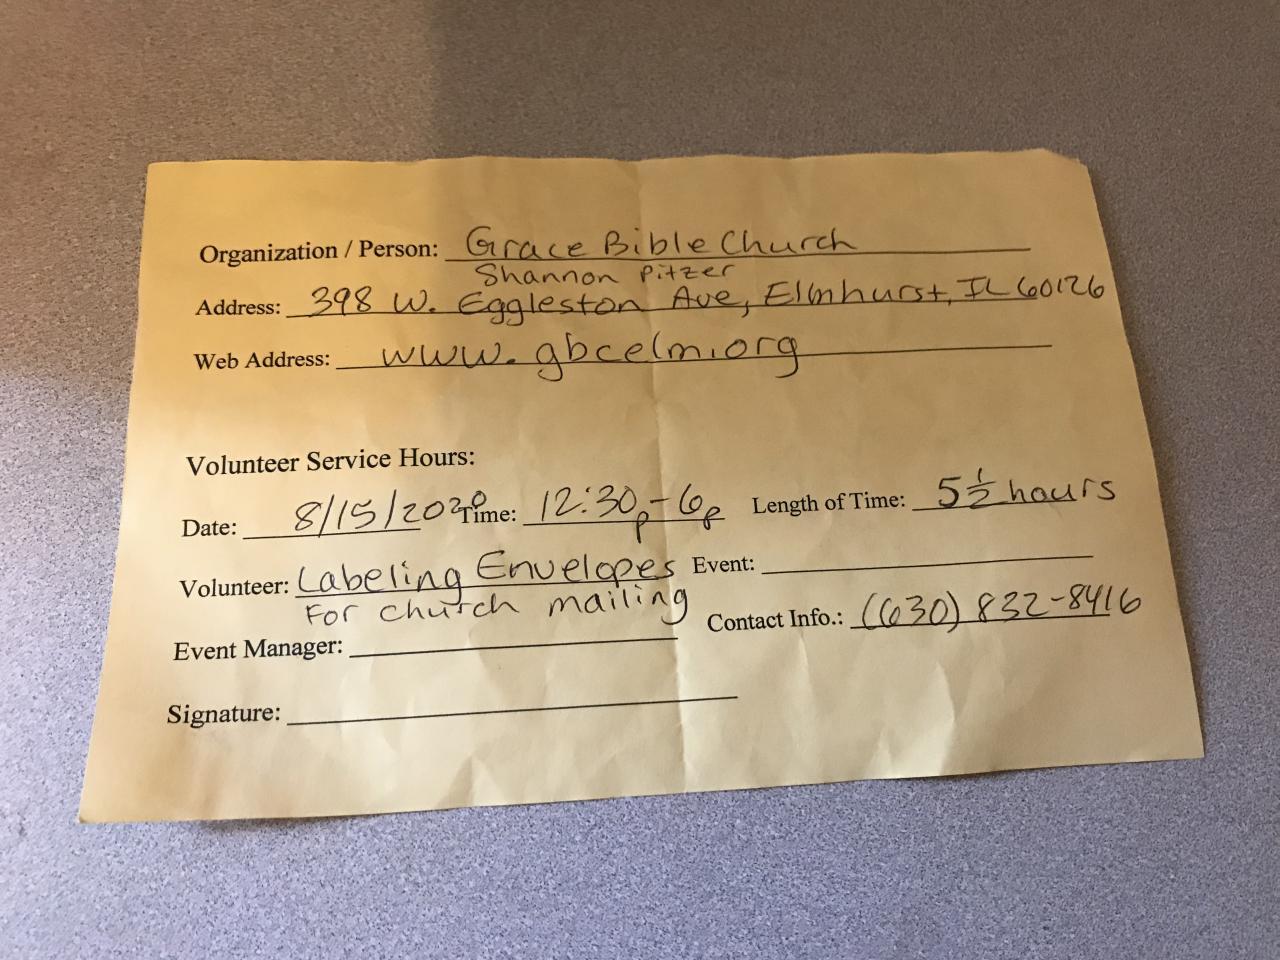 Organization / Person: Grace Bible Church
Shannon Pitzer
Address: 398 W. Eggleston Ave, Elmhurst, IL 60126
Web Address: www.gbcelm.org
Volunteer Service Hours:
Date: 8/15/2020 Time: 12:30p-6p Length of Time: 5 1/2 hours
Volunteer: Labeling Envelopes Event:
For church mailing
Event Manager: Contact Info.: (630) 832-8416
Signature: